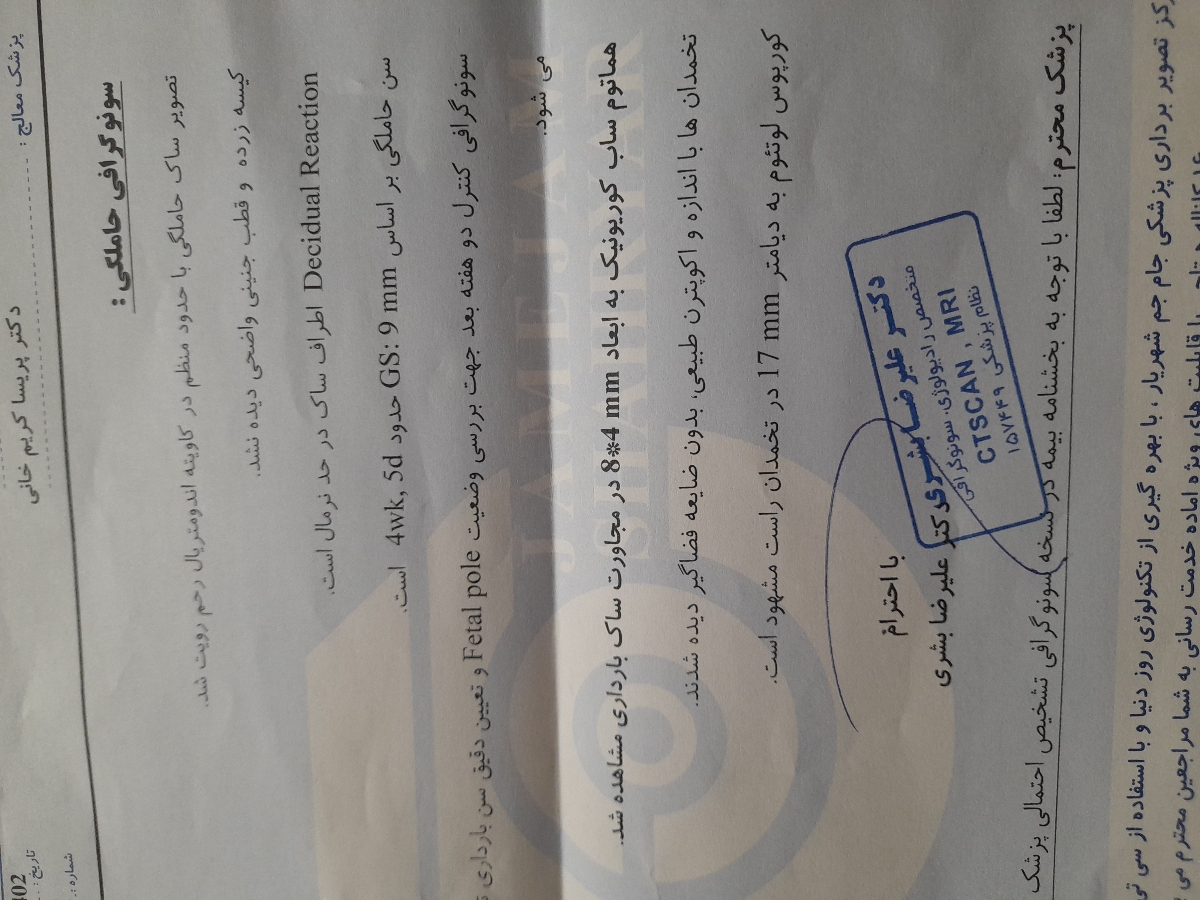 پزشک معالج :
دکتر پریسا کریم خانی
402
تاریخ :
شماره :
سونوگرافی حاملگی :
تصویر ساک حاملگی با حدود منظم در کاویته اندومتریال رحم رویت شد.
کیسه زرده و قطب جنینی واضحی دیده نشد.
Decidual Reaction اطراف ساک در حد نرمال است.
سن حاملگی بر اساس GS: 9 mm حدود 4wk, 5d است.
سونوگرافی کنترل دو هفته بعد جهت بررسی وضعیت Fetal pole و تعیین دقیق سن بارداری
می شود.
هماتوم ساب کوریونیک به ابعاد 8*4 mm در مجاورت ساک بارداری مشاهده شد.
تخمدان ها با اندازه و اکوپترن طبیعی، بدون ضایعه فضاگیر دیده شدند.
کورپوس لوتئوم به دیامتر 17 mm در تخمدان راست مشهود است.
با احترام
دکتر علیرضا بشری
دکتر علیرضا بشری
متخصص رادیولوژی، سونوگرافی
CTSCAN , MRI
نظام پزشکی ۱۵۷۴۴۹
پزشک محترم: لطفا با توجه به بخشنامه بیمه در نسخه سونوگرافی تشخیص احتمالی پزشک
تصویر برداری پزشکی جام جم شهریار ، با بهره گیری از تکنولوژی روز دنیا و با استفاده از سی تی
قابلیت های ویژه آماده خدمت رسانی به شما مراجعین محترم می
JAMEJAM
SHAHRIAR